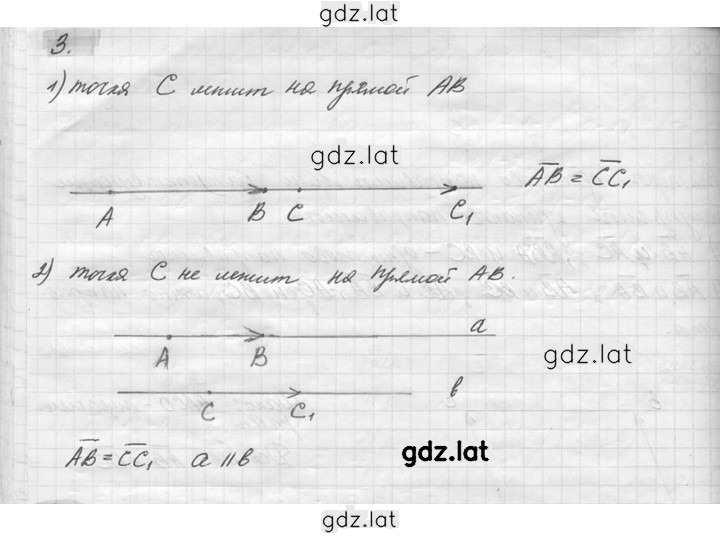 gdz.lat
3.
1) точка С лежит на прямой АВ
gdz.lat
AB = CC₁
A B C C₁
2) точка С не лежит на прямой АВ.
a
A B
gdz.lat
b
C C₁
AB = CC₁ a || b
gdz.lat
gdz.lat